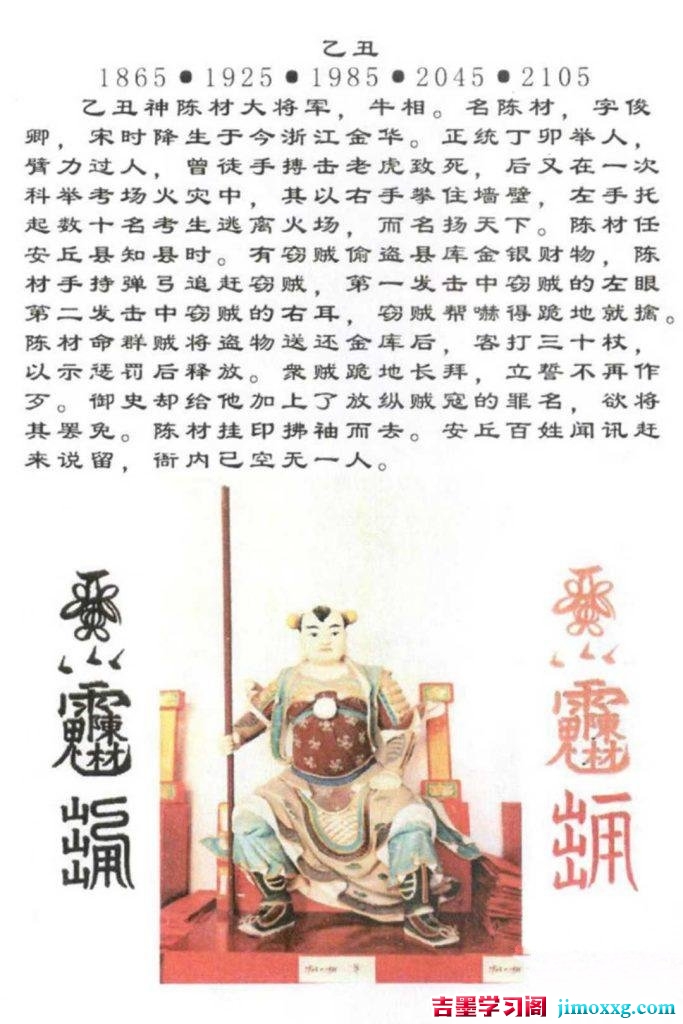 乙丑
1865●1925●1985●2045●2105
乙丑神陈材大将军，牛相。名陈材，字俊
卿，宋时降生于今浙江金华。正统丁卯举人，
臂力过人，曾徒手搏击老虎致死，后又在一次
科举考场火灾中，其以右手攀住墙壁，左手托
起数十名考生逃离火场，而名扬天下。陈材任
安丘县知县时。有窃贼偷盗县库金银财物，陈
材手持弹弓追赶窃贼，第一发击中窃贼的左眼
第二发击中窃贼的右耳，窃贼帮嚇得跪地就擒。
陈材命群贼将盗物送还金库后，客打三十杖，
以示惩罚后释放。衆贼跪地长拜，立誓不再作
歹。御史却给他加上了放纵贼寇的罪名，欲将
其罢免。陈材挂印拂袖而去。安丘百姓闻讯赶
来说留，衙内已空无一人。
吉墨学习阁 jimoxxg.com